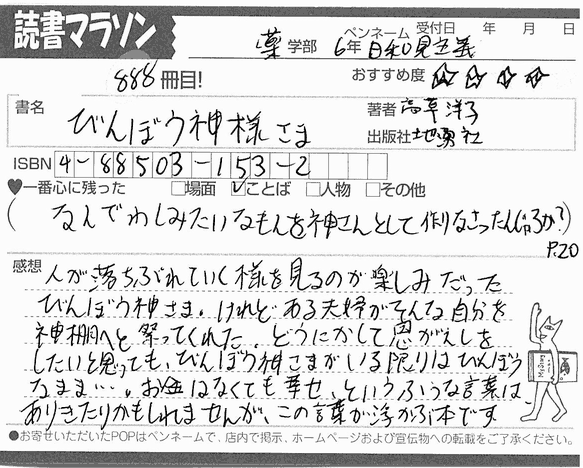 読書マラソン
薬学部 6年 ペンネーム 日和見主義 受付日 年 月 日
888冊目! おすすめ度 ☆☆☆☆
書名 びんぼう神様さま
著者 高草洋子
出版社 地湧社
ISBN 4-88503-153-2
♥一番心に残った □場面 ☑ことば □人物 □その他
(なんでわしみたいなもんを神さんとして作りなさったんじゃろか?)
P.20
感想 人が落ちぶれていく様を見るのが楽しみだった
びんぼう神さま。けれど ある夫婦がそんな自分を
神棚へと祭ってくれた。どうにかして恩がえしを
したいと思っても、びんぼう神さまがいる限りはびんぼう
なまま…。お金はなくても幸せ、というふうな言葉は、
ありきたりかもしれませんが、この言葉が浮かぶ本です
●お寄せいただいたPOPはペンネームで、店内で掲示、ホームページおよび宣伝物への転載をご了承ください。